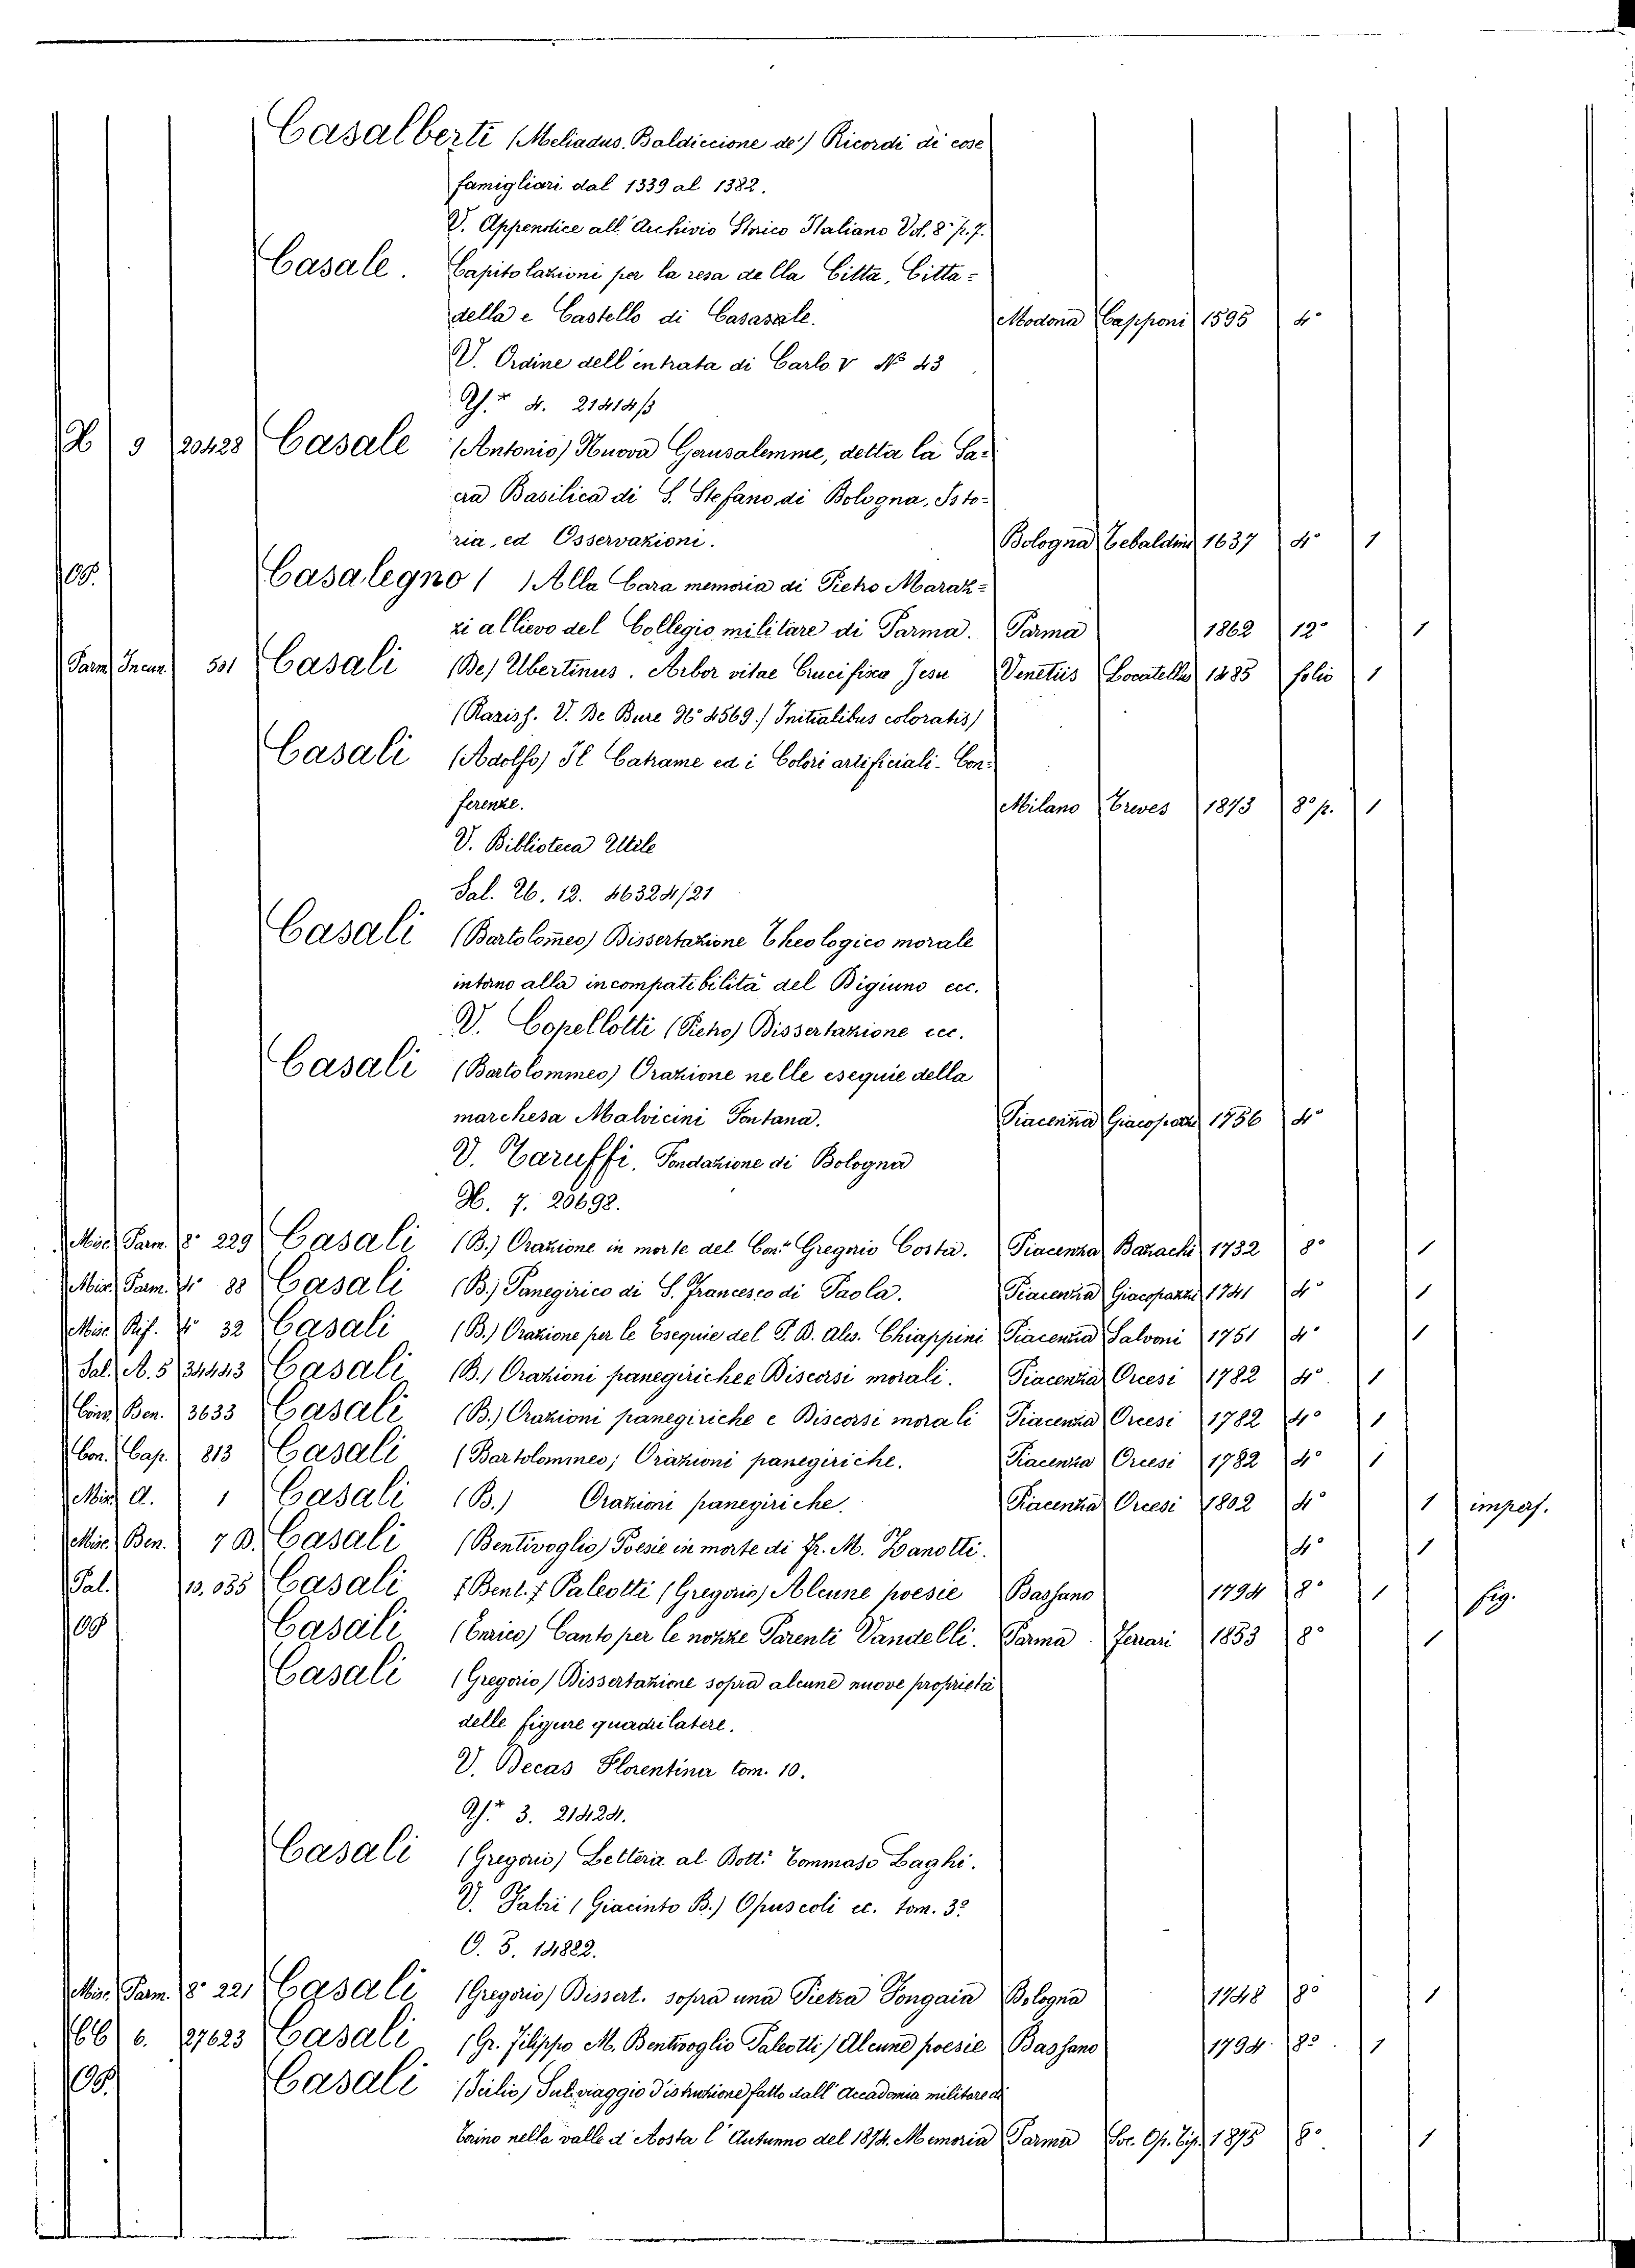 Casalberti (Meliadus. Baldiccione de') Ricordi di cose
famigliari dal 1339 al 1382.
V. Appendice all'Archivio Storico Italiano Vol. 8° p. 7.
Casale. Capitolazioni per la resa della Città, Citta=
della e Castello di Casasale. Modona Capponi 1595 4°
V. Ordine dell'entrata di Carlo V N° 43
4. 21414/3
H 9 20428 Casale (Antonio) Nuova Gerusalemme, detta la Sa=
cra Basilica di S. Stefano di Bologna, Isto=
ria, ed Osservazioni. Bologna Tebaldini 1637 4° 1
Casalegno ( ) Alla Cara memoria di Pietro Maraz=
zi allievo del Collegio militare di Parma. Parma 1862 12° 1
Parm. Incun. 501 Casali (De) Ubertinus. Arbor vitae Crucifixa Jesu Venetiis Locatellus 1485 folio 1
(Rariss. V. De Bure N° 4569.) Initialibus coloratis)
Casali (Adolfo) Il Catrame ed i Colori artificiali - Con=
ferenze. Milano Treves 1873 8° p. 1
V. Biblioteca Utile
Sal. 26. 12. 46324/21
Casali (Bartolomeo) Dissertazione Theologico morale
intorno alla incompatibilità del Digiuno ecc.
V. Copellotti (Pietro) Dissertazione ecc.
Casali (Bartolommeo) Orazione nelle esequie della
marchesa Malvicini Fontana. Piacenza Giacopazzi 1756 4°
V. Taruffi. Fondazione di Bologna
H. 7. 20698.
Misc. Parm. 8° 229 Casali (B.) Orazione in morte del Con. Gregorio Costa. Piacenza Bazachi 1732 8° 1
Misc. Parm. 4° 88 Casali (B.) Panegirico di S. Francesco di Paola. Piacenza Giacopazzi 1741 4° 1
Misc. Rif. 4° 32 Casali (B.) Orazione per le Esequie del P. D. Ales. Chiappini Piacenza Salvoni 1751 4° 1
Sal. A. 5 34443 Casali (B.) Orazioni panegiriche e Discorsi morali. Piacenza Orcesi 1782 4° 1
Cons. Ben. 3633 Casali (B.) Orazioni panegiriche e Discorsi morali Piacenza Orcesi 1782 4° 1
Con. Cap. 813 Casali (Bartolommeo) Orazioni panegiriche. Piacenza Orcesi 1782 4° 1
Misc. A. 1 Casali (B.) Orazioni panegiriche. Piacenza Orcesi 1802 4° 1 imperf.
Misc. Ben. 7 B. Casali (Bentivoglio) Poesie in morte di Fr. M. Zanotti. 4° 1
Pal. 13.035 Casali (Bent.) Paleotti (Gregorio) Alcune poesie Bassano 1794 8° 1 fig.
Casali (Enrico) Canto per le nozze Parenti Vandelli. Parma Ferrari 1853 8° 1
Casali (Gregorio) Dissertazione sopra alcune nuove proprietà
delle figure quadrilatere.
V. Decas Florentina tom. 10.
3. 21424.
Casali (Gregorio) Lettera al Dott. Tommaso Laghi.
V. Fabri (Giacinto B.) Opuscoli ec. tom. 3°
O. 5. 14882.
Misc. Parm. 8° 221 Casali (Gregorio) Dissert. sopra una Pietra Fongaia Bologna 1748 8° 1
6. 27623 Casali (Gr. Filippo M. Bentivoglio Paleotti) Alcune poesie Bassano 1794. 8° 1
Casali (Tullio) Sul viaggio d'istruzione fatto dall'Accademia militare di
Torino nella valle d'Aosta l'Autunno del 1874. Memoria Parma Soc. Op. Tip. 1875 8° 1